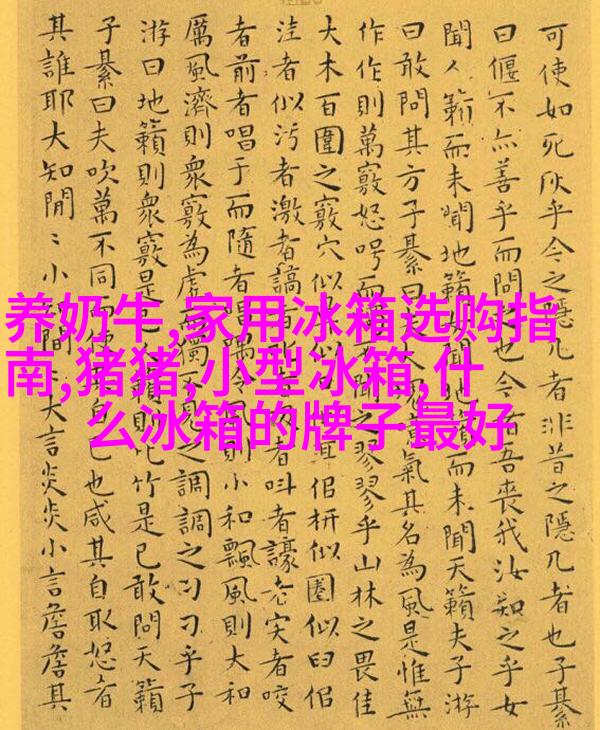 养奶牛,家用冰箱选购指
南,猪猪,小型冰箱,什
么冰箱的牌子最好
可使如死灰乎今之隱几者非昔之隱几者也子綦
曰偃不亦善乎而問也今者吾喪我汝知之乎女
聞人籟而未聞地籟女聞地籟而未聞天籟夫子游
曰敢問其方子綦曰氣其名為風是惟無
作作則萬竅怒呺而之翏翏乎山林之畏佳
大木百圍之竅穴似佀枅似圈似臼佀
洼者似污者激者謞者者叫者譹者宎者咬
者前者唱于而隨者唱喁風則小和飄風則大和
厲風濟則衆竅為虛而獨見之調調之刁刁乎子
游曰地籟則衆竅是已則比竹是已敢問天籟
子綦曰夫吹萬不同而使自己也咸其自取怒者
其誰耶大知閒〻小間〻大言炎炎小言詹詹其